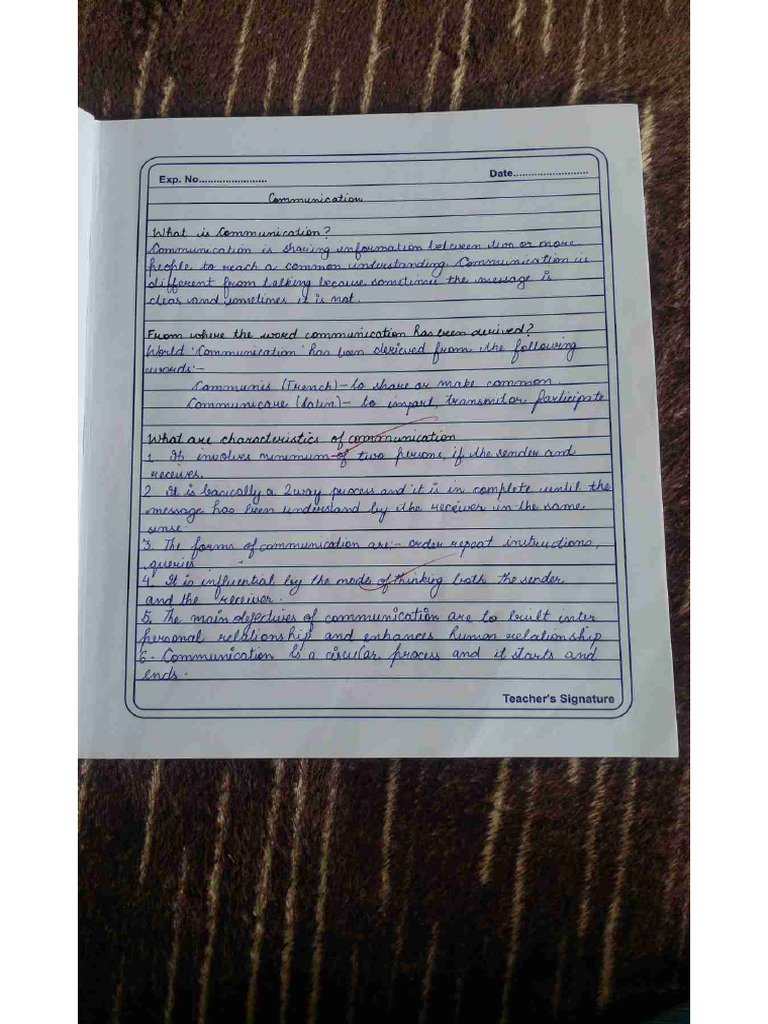 Exp. No....................... Date.........................
Communication
What is Communication?
Communication is sharing information between two or more
people to reach a common understanding. Communication is
different from talking because sometimes the message is
clear and sometimes it is not.
From where the word communication has been derived?
World 'Communication' has been dericved from the following
words:-
Communis (French) - to share or make common
Communicare (Latin) - to impart, transmit or participate
What are characteristics of communication
1. It involves minimum of two persons, if the sender and
receiver.
2 It is basically a 2way process and it is in complete until the
message has been understand by the receiver in the same
sense.
3. The forms of communication are:- order repeat instructions,
queries
4. It is influential by the mode of thinking both the sender
and the receiver.
5. The main objectives of communication are to built inter
personal relationship and enhances human relationship
6. Communication is a circular process and it starts and
ends.
Teacher's Signature